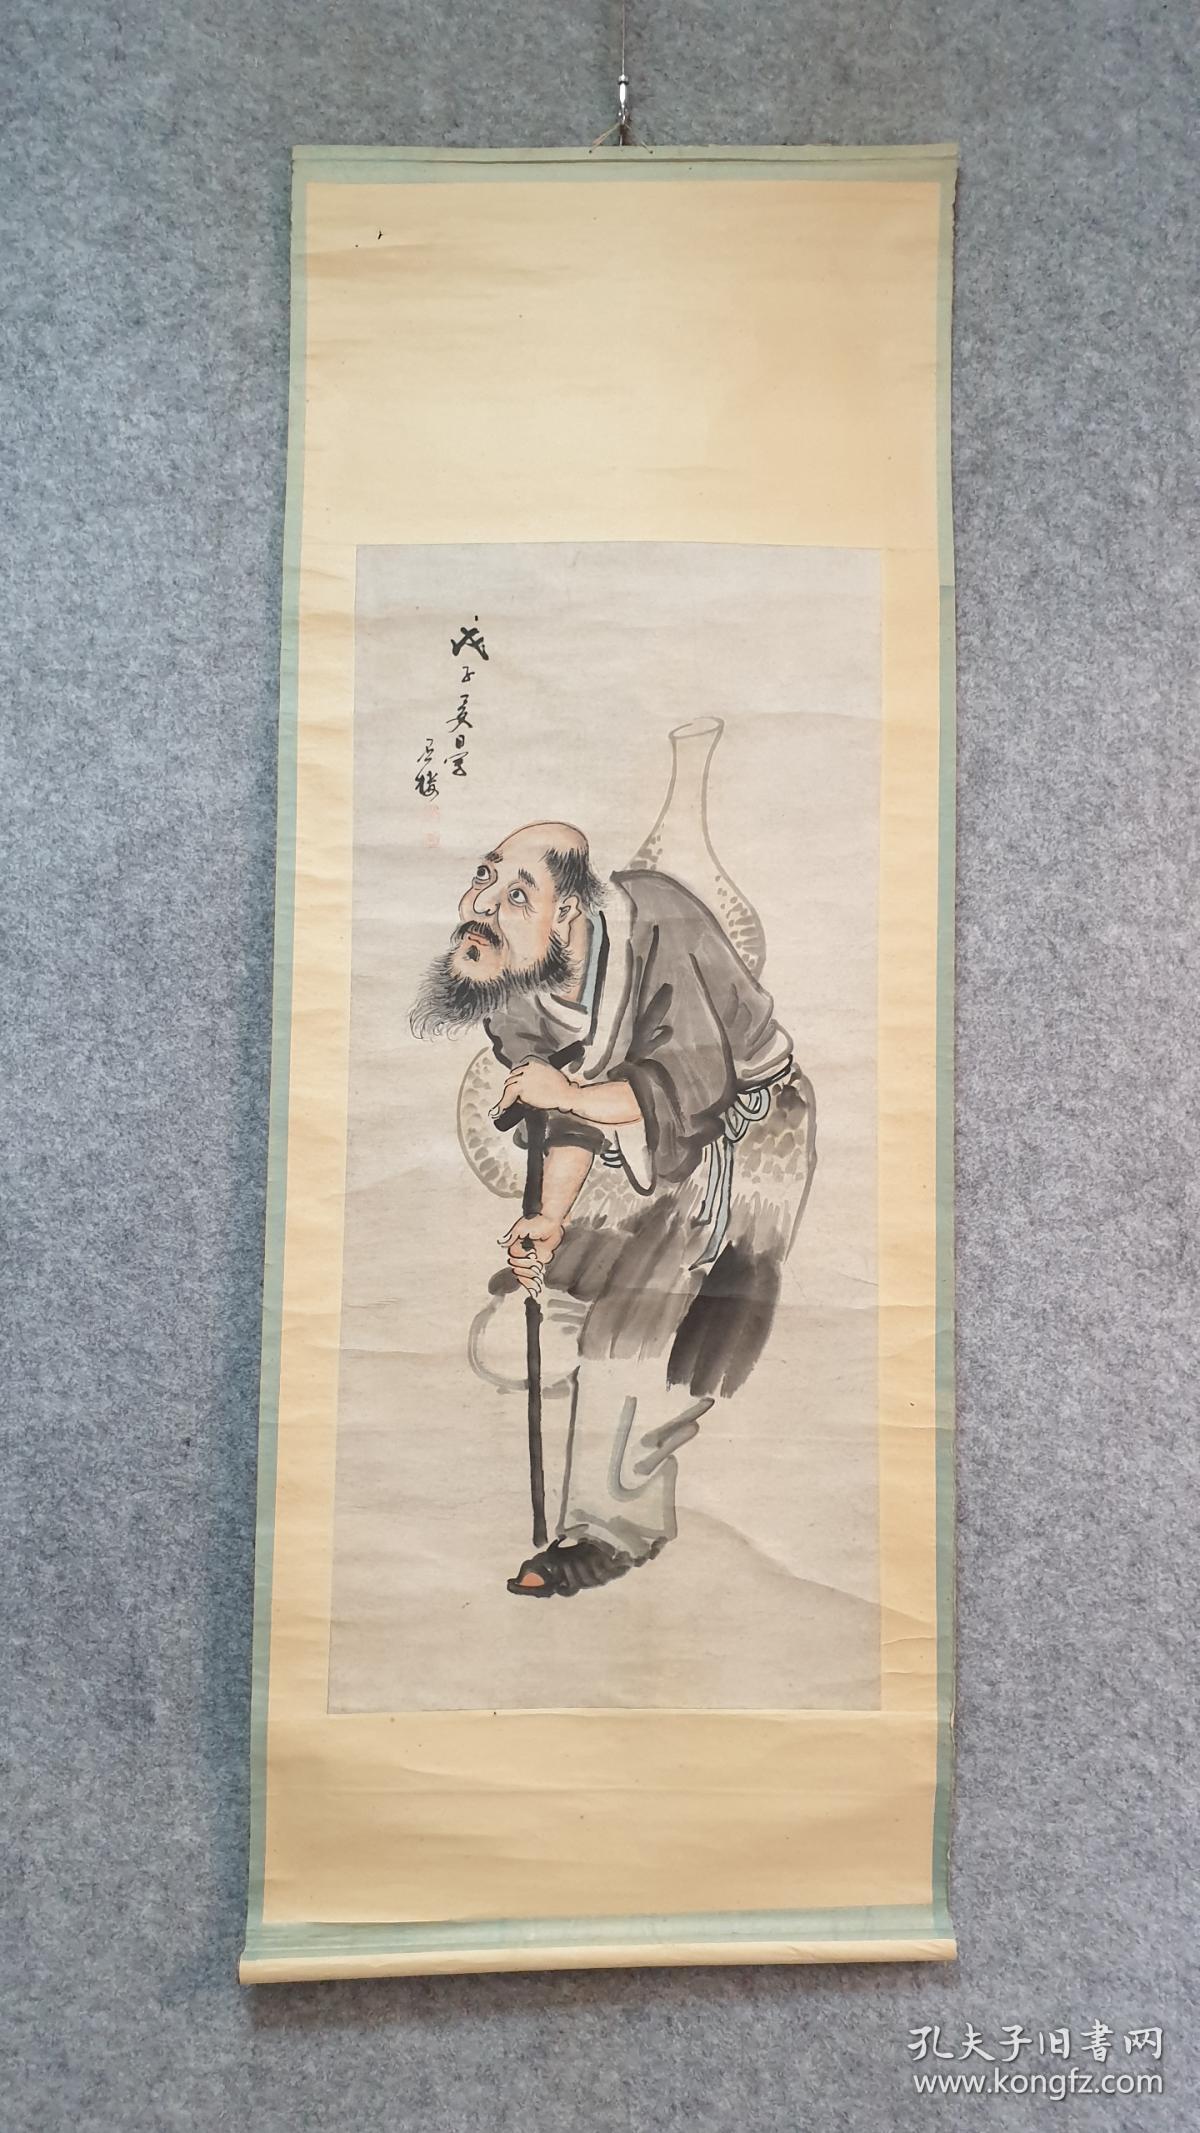 戊子夏日写
石楼
孔夫子旧書网
www.kongfz.com